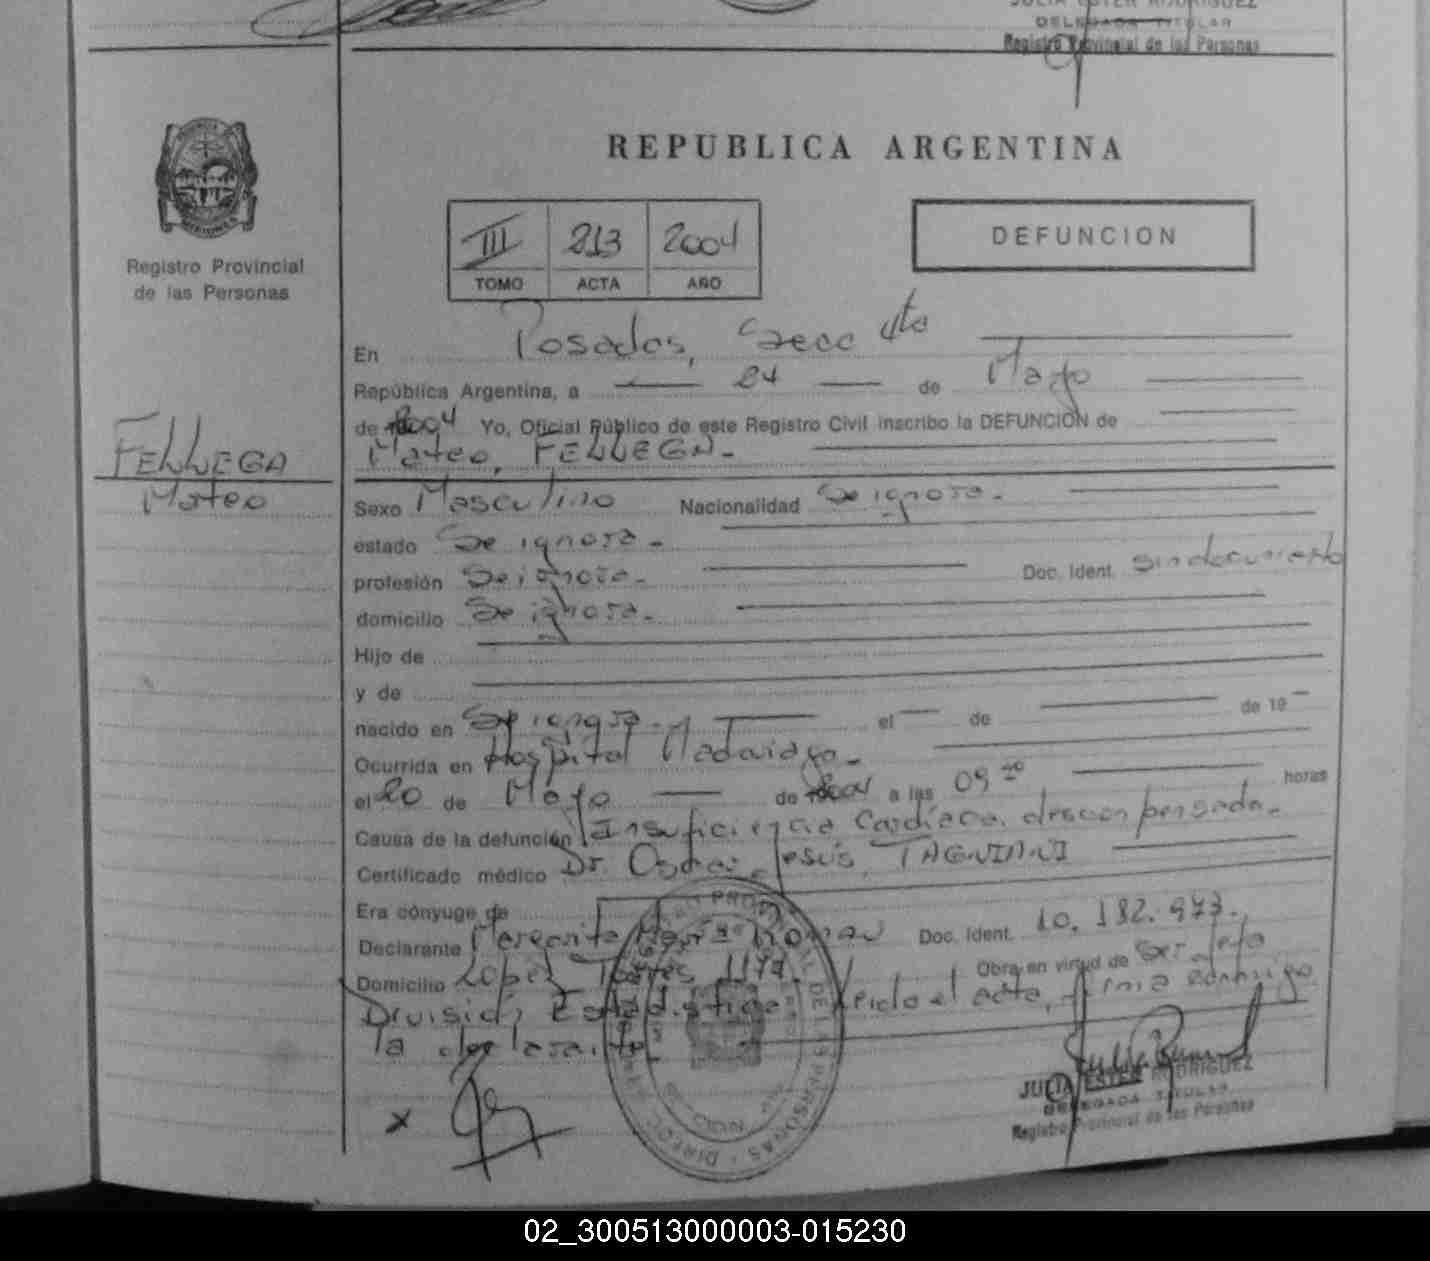 JULIA ESTER RODRIGUEZ
DELEGADA TITULAR
Registro Provincial de las Personas
REPUBLICA ARGENTINA
III 213 2004
TOMO ACTA AÑO
DEFUNCION
Registro Provincial
de las Personas
En Posadas, Secc 4ta
República Argentina, a 24 de Mayo
de 2004 Yo, Oficial Público de este Registro Civil inscribo la DEFUNCIÓN de
Mateo, FELLEGA.-
FELLEGA
Mateo
Sexo Masculino Nacionalidad Se ignora.-
estado Se ignora.-
profesión Se ignora.- Doc. Ident. sin documento
domicilio Se ignora.-
Hijo de
y de
nacido en Se ignora.- el de de 19
Ocurrida en Hospital Madariaga.-
el 20 de Mayo de 2004 a las 09 horas
Causa de la defunción Insuficiencia Cardíaca descompensada.-
Certificado médico Dr. Oscar Jesús, TAGNIANI
Era cónyuge de
Declarante Margarita Doc. Ident. 10.182.973.-
Domicilio López Torres 1177 Obra en virtud de Ser Jefa
División Estadistica Leido el acta, firma conmigo
la declarante
x
JULIA ESTER RODRIGUEZ
DELEGADA TITULAR
Registro Provincial de las Personas
02_300513000003-015230